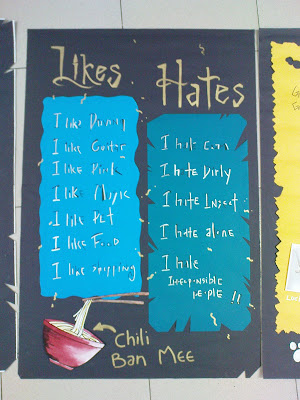 Likes
I like
I like
I like Pink
I like Magic
I like Pet
I like Food
I like shopping
Hates
I hate
I hate Dirty
I hate Insect
I hate alone
I hate
Irresponsible
people !!
Chili
Ban Mee